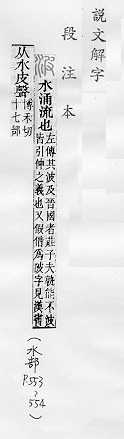 說文解字
段注本
波
水涌流也
左傳其波及晉國者莊子夫孰能不波
皆引伸之義也又假借爲陂字見漢書
从水皮聲
博禾切
十七部
(水部
P553~
554)